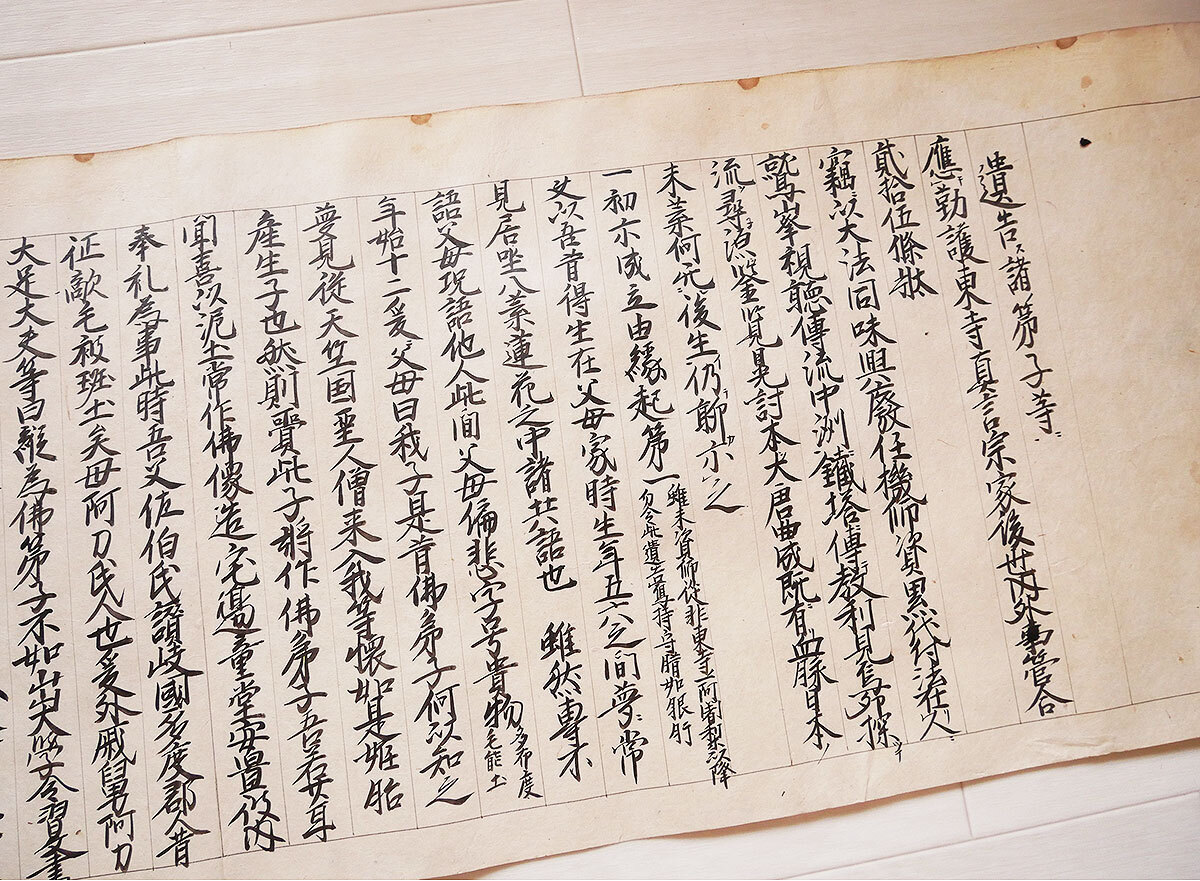 遺告諸弟子等
應勤護東寺真言宗家後世内外事管合
貳拾伍條狀
竊以大法同味興廢任機師資累代付法在人
鷲峯視聽傳流中洲鐵塔傳教利見
流尋源鑒覽晃討本大唐曲成既有血脉日本
未葉何元後生仍聊示之
一初示成立由緣起第一 雖未資師從非東寺一阿闍梨以降
夫以吾昔得生在父母家時生年五六之間夢常
見居坐八葉蓮花之中諸共語也 雖然專不
語父母况語他人此間父母偏悲字号貴物 多布度毛能土
年始十二爰父母曰我子是昔佛弟子何以知之
夢見從天竺国聖人僧来入我等懷如是姙胎
産生子也然則賷此子將作佛弟子吾若女耳
聞喜以泥土常作佛像造宅邊童堂安置彼内
奉礼為事此時吾父佐伯氏讃岐國多度郡人昔
征敵毛被班土矣母阿刀氏人也爰外戚舅阿刀
大足大夫等曰縦為佛弟子不如出大學令習文書